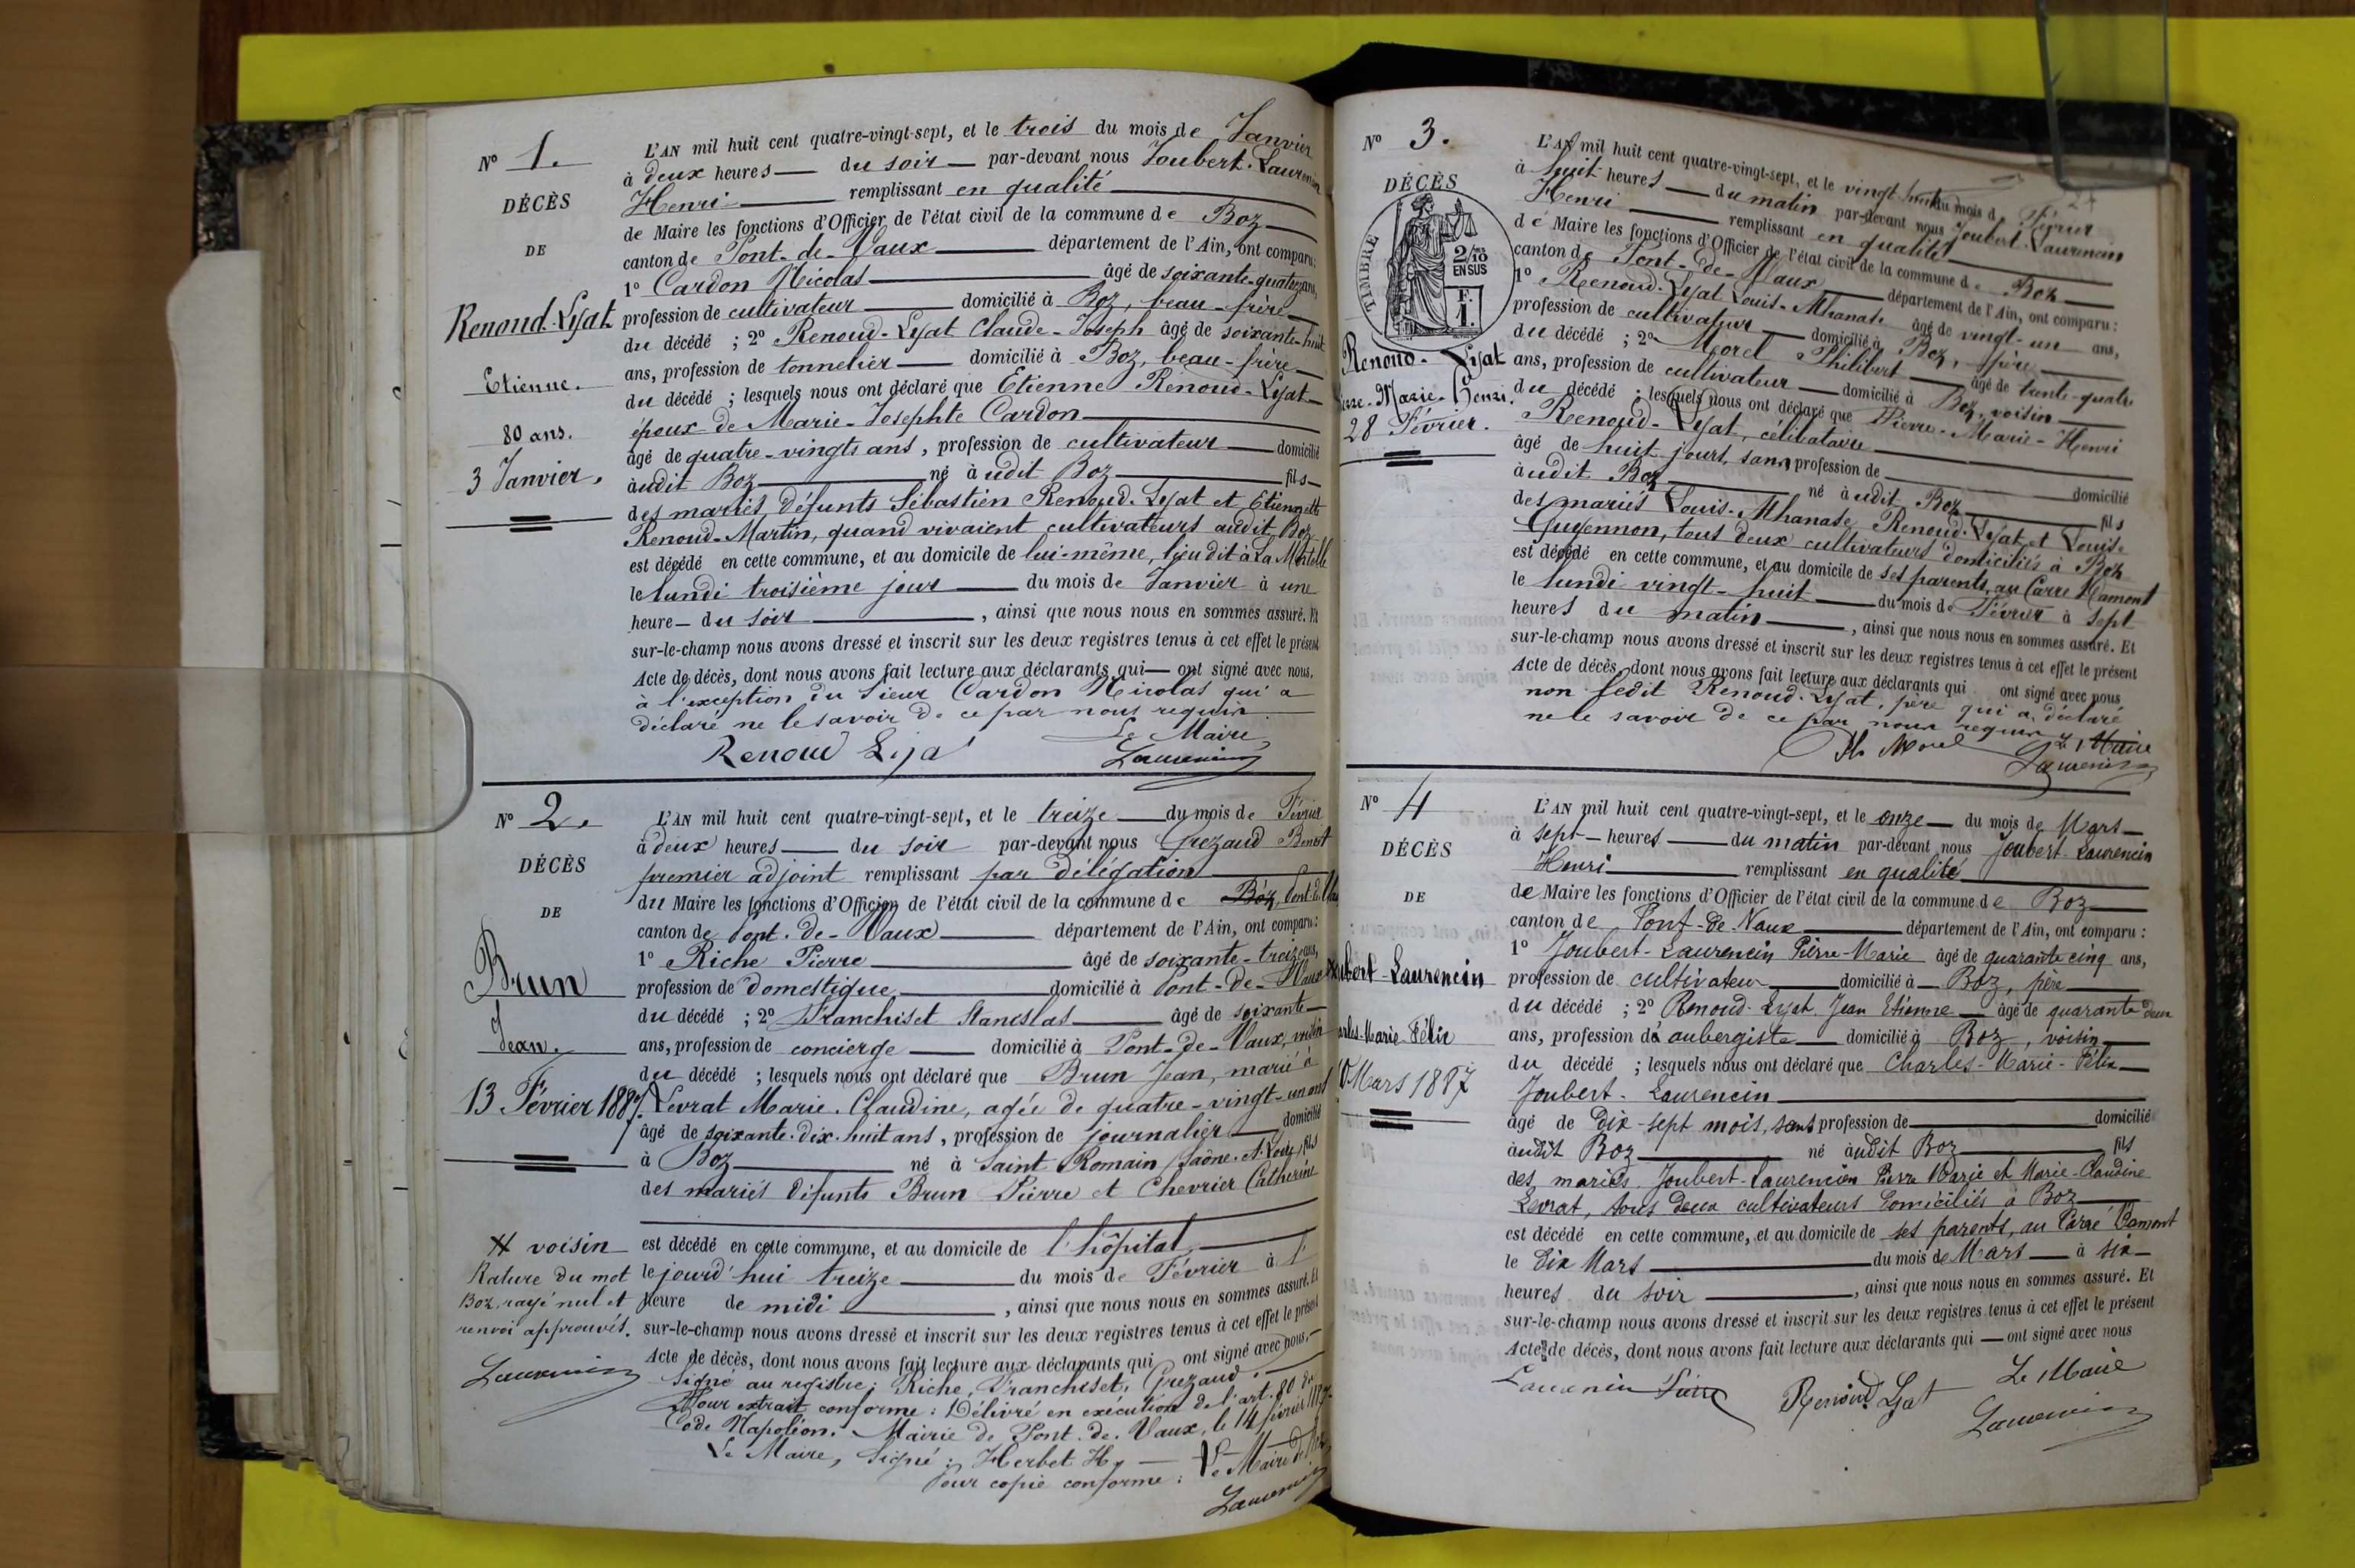 N° 1.
DÉCÈS
DE
Renoud-Lyat
Etienne.
80 ans.
3 Janvier.
L'AN mil huit cent quatre-vingt-sept, et le trois du mois de Janvier
à deux heures — du soir — par-devant nous Joubert-Laurencin
Henri — remplissant en qualité
de Maire les fonctions d'Officier de l'état civil de la commune de Boz
canton de Pont-de-Vaux — département de l'Ain, ont comparu :
1° Cardon Nicolas — âgé de soixante-quatorze ans,
profession de cultivateur — domicilié à Boz, beau-frère
du décédé ; 2° Renoud-Lyat Claude-Joseph âgé de soixante-huit
ans, profession de tonnelier — domicilié à Boz, beau-frère
du décédé ; lesquels nous ont déclaré que Etienne Renoud-Lyat
époux de Marie-Josephte Cardon
âgé de quatre-vingts ans, profession de cultivateur — domicilié
àudit Boz — né àudit Boz — fils
des mariés défunts Sébastien Renoud-Lyat et Etiennette
Renoud-Martin, quand vivaient cultivateurs audit Boz
est décédé en cette commune, et au domicile de lui-même, lieu dit à La
le lundi troisième jour — du mois de Janvier à une
heure — du soir —, ainsi que nous nous en sommes assuré. Et
sur-le-champ nous avons dressé et inscrit sur les deux registres tenus à cet effet le présent
Acte de décès, dont nous avons fait lecture aux déclarants qui — ont signé avec nous,
à l'exception du sieur Cardon Nicolas qui a
déclaré ne le savoir de ce par nous requis.
Le Maire
Renoud Lija
Laurencin
N° 2.
DÉCÈS
DE
Brun
Jean.
13 Février 1887.
# voisin
Rature du mot
Boz, rayé nul et
renvoi approuvés.
Laurencin
L'AN mil huit cent quatre-vingt-sept, et le treize — du mois de Février
à deux heures — du soir par-devant nous Grezaud Benoit
premier adjoint remplissant par délégation
du Maire les fonctions d'Officier de l'état civil de la commune de Boz, Pont-de-Vaux
canton de Pont-de-Vaux — département de l'Ain, ont comparu :
1° Riche Pierre — âgé de soixante-treize ans,
profession de domestique — domicilié à Pont-de-Vaux #
du décédé ; 2° Franchiset Stanislas — âgé de soixante
ans, profession de concierge — domicilié à Pont-de-Vaux, voisin
du décédé ; lesquels nous ont déclaré que Brun Jean, marié à
Levrat Marie-Claudine, agée de quatre-vingt-un ans
âgé de soixante-dix-huit ans, profession de journalier — domicilié
à Boz — né à Saint Romain (Saône-et-Loire) fils
des mariés défunts Brun Pierre et Chevrier Catherine
est décédé en cette commune, et au domicile de l'hôpital
le jourd'hui treize — du mois de Février à 1
heure de midi —, ainsi que nous nous en sommes assuré. Et
sur-le-champ nous avons dressé et inscrit sur les deux registres tenus à cet effet le présent
Acte de décès, dont nous avons fait lecture aux déclarants qui ont signé avec nous.
Signé au registre : Riche, Franchiset, Grezaud.
Pour extrait conforme : Délivré en exécution de l'art. 80 du
Code Napoléon. Mairie de Pont-de-Vaux, le 14 février 1887.
Le Maire, Signé : Herbet H. — Le Maire de Boz
Pour copie conforme :
Laurencin
N° 3.
DÉCÈS
TIMBRE
2/10 EN SUS
F. 1.
Renoud-Lyat
Pierre-Marie-Henri.
28 Février.
L'AN mil huit cent quatre-vingt-sept, et le vingt huit du mois de Février
à huit heures — du matin par-devant nous Joubert-Laurencin
Henri — remplissant en qualité
de Maire les fonctions d'Officier de l'état civil de la commune de Boz
canton de Pont-de-Vaux — département de l'Ain, ont comparu :
1° Renoud-Lyat Louis-Athanase âgé de vingt-un ans,
profession de cultivateur — domicilié à Boz, père
du décédé ; 2° Morel Philibert — âgé de trente-quatre
ans, profession de cultivateur — domicilié à Boz, voisin
du décédé ; lesquels nous ont déclaré que Pierre-Marie-Henri
Renoud-Lyat, célibataire
âgé de huit jours, sans profession de — domicilié
àudit Boz — né àudit Boz — fils
des mariés Louis-Athanase Renoud-Lyat et Louise
Guyennon, tous deux cultivateurs domiciliés à Boz
est décédé en cette commune, et au domicile de ses parents, au Carré Mamont
le lundi vingt-huit — du mois de Février à sept
heures du matin —, ainsi que nous nous en sommes assuré. Et
sur-le-champ nous avons dressé et inscrit sur les deux registres tenus à cet effet le présent
Acte de décès, dont nous avons fait lecture aux déclarants qui ont signé avec nous
non ledit Renoud-Lyat, père qui a déclaré
ne le savoir de ce par nous requis.
Ph Morel
Le Maire
Laurencin
N° 4
DÉCÈS
DE
Joubert-Laurencin
Charles-Marie-Félix
10 Mars 1887
L'AN mil huit cent quatre-vingt-sept, et le onze — du mois de Mars
à sept — heures — du matin par-devant nous Joubert-Laurencin
Henri — remplissant en qualité
de Maire les fonctions d'Officier de l'état civil de la commune de Boz
canton de Pont-de-Vaux — département de l'Ain, ont comparu :
1° Joubert-Laurencin Pierre-Marie âgé de quarante cinq ans,
profession de cultivateur — domicilié à Boz, père
du décédé ; 2° Renoud-Lyat Jean Etienne — âgé de quarante deux
ans, profession d'aubergiste — domicilié à Boz, voisin
du décédé ; lesquels nous ont déclaré que Charles-Marie-Félix
Joubert-Laurencin
âgé de dix-sept mois, sans profession de — domicilié
àudit Boz — né àudit Boz — fils
des mariés Joubert-Laurencin Pierre Marie et Marie-Claudine
Levrat, tous deux cultivateurs domiciliés à Boz
est décédé en cette commune, et au domicile de ses parents, au Carré Mamont
le dix Mars — du mois de Mars — à six
heures du soir —, ainsi que nous nous en sommes assuré. Et
sur-le-champ nous avons dressé et inscrit sur les deux registres tenus à cet effet le présent
Acte de décès, dont nous avons fait lecture aux déclarants qui — ont signé avec nous
Laurencin Pierre
Renoud Lyat
Le Maire
Laurencin